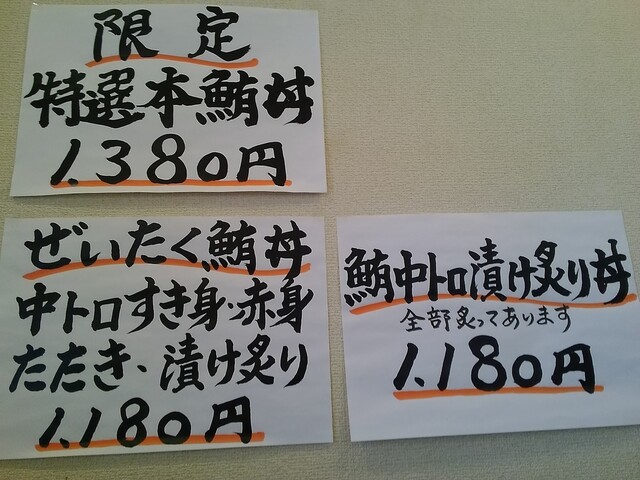 限定
特選本鮪丼
1.380円
ぜいたく鮪丼
中トロすき身・赤身
たたき、漬け炙り
1.180円
鮪中トロ漬け炙り丼
全部炙ってあります
1.180円